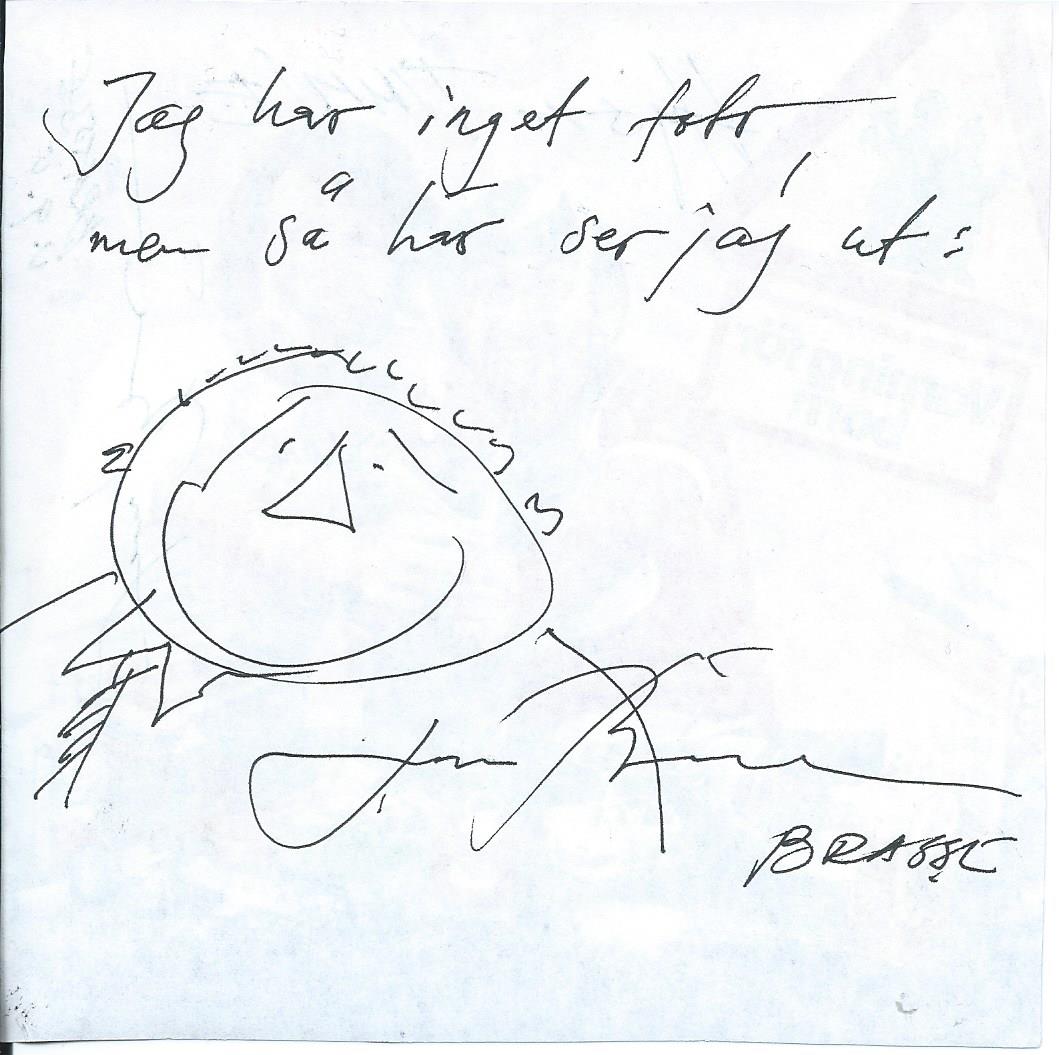 Jag har inget foto
men så här ser jag ut:
BRASSE